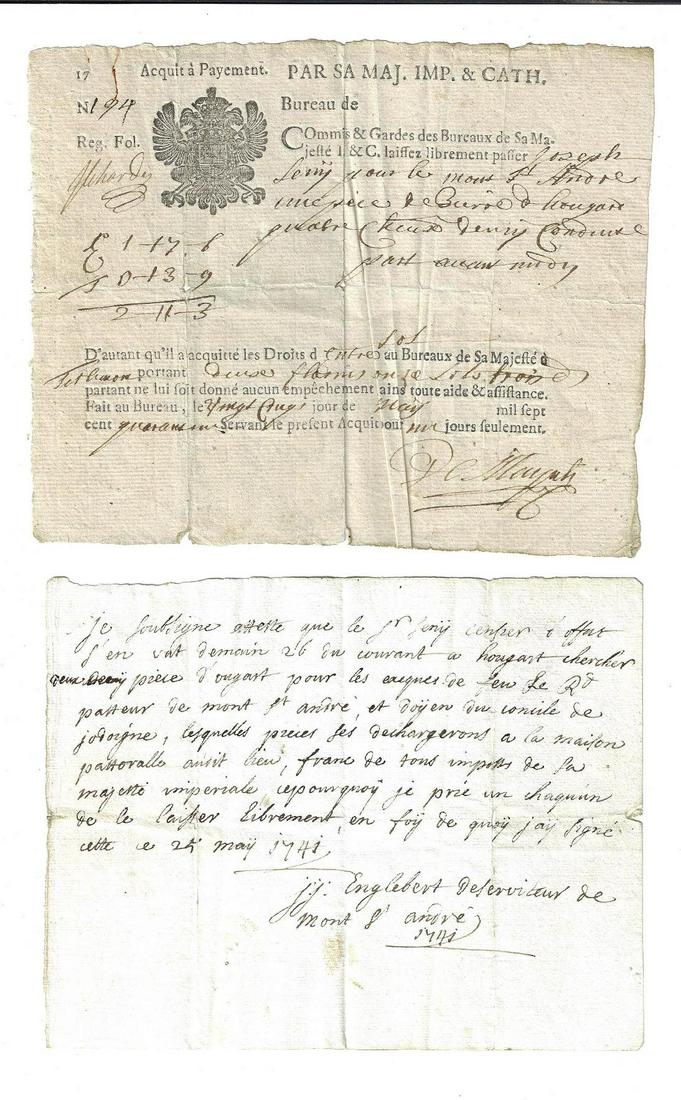 17 Acquit à Payement. PAR SA MAJ. IMP. & CATH.
N 194 Bureau de
Reg. Fol. COmmis & Gardes des Bureaux de Sa Ma-
jesté I. & C. laissez librement passer Joseph
pour le mont St André
piece de d'hougard
quatre Conduise
part avant midy
1-17-6
0-13-9
2-11-3
D'autant qu'il a acquitté les Droits d'Entré au Bureaux de Sa Majesté à
portant deux florins onze sols trois
partant ne lui soit donné aucun empêchement ains toute aide & assistance.
Fait au Bureau, le Vingt Cinq jour de May mil sept
cent quarante un Servant le present Acquit pour un jours seulement.
je soubsigne atteste que le Sr censier d'offut
s'en vat demain 26 du courant a hougart chercher
piece d'ougart pour les de feu Le Rd
pasteur de mont St andré, et doÿen du concile de
jodoigne, lesquelles pieces ses dechargerons a la maison
pastoralle audit lieu, franc de tous imposts de sa
majesté imperiale cepourquoÿ je prie un chaquun
de le laisser librement, en foÿ de quoÿ j'aÿ signé
cette ce 25 maÿ 1741
jj. Englebert deserviteur de
mont St andré
1741